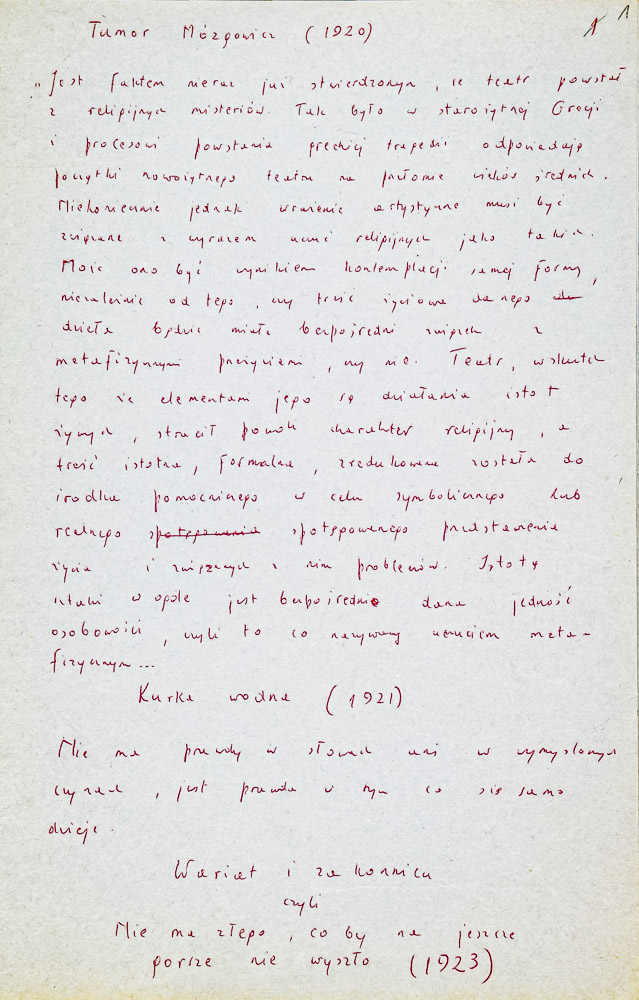 1 1
Tumor Mózgowicz (1920)
„Jest faktem nieraz już stwierdzonym, że teatr powstał
z religijnych misteriów. Tak było w starożytnej Grecji
i procesowi powstania greckiej tragedii odpowiadają
początki nowożytnego teatru na przełomie wieków średnich.
Niekoniecznie jednak wrażenie artystyczne musi być
związane z wyrazem uczuć religijnych jako takich.
Może ono być wynikiem kontemplacji samej formy,
niezależnie od tego, czy treść życiowa danego
dzieła będzie miała bezpośredni związek z
metafizycznymi przeżyciami, czy nie. Teatr, wskutek
tego że elementami jego są działania isto t
żywych, stracił powoli charakter religijny, a
treść istotna, formalna, zredukowana została do
środka pomocniczego w celu symbolicznego lub
realnego spotęgowania spotęgowanego przedstawienia
życia i związanych z nim problemów. Istotą
sztuki w ogóle jest bezpośrednio dana jedność
osobowości, czyli to co nazywamy uczuciem meta-
fizycznym...
Kurka wodna (1921)
Nie ma prawdy w słowach ani w wymyślonych
czynach, jest prawda w tym co się samo
dzieje.
Wariat i zakonnica
czyli
Nie ma złego, co by na jeszcze
gorsze nie wyszło (1923)